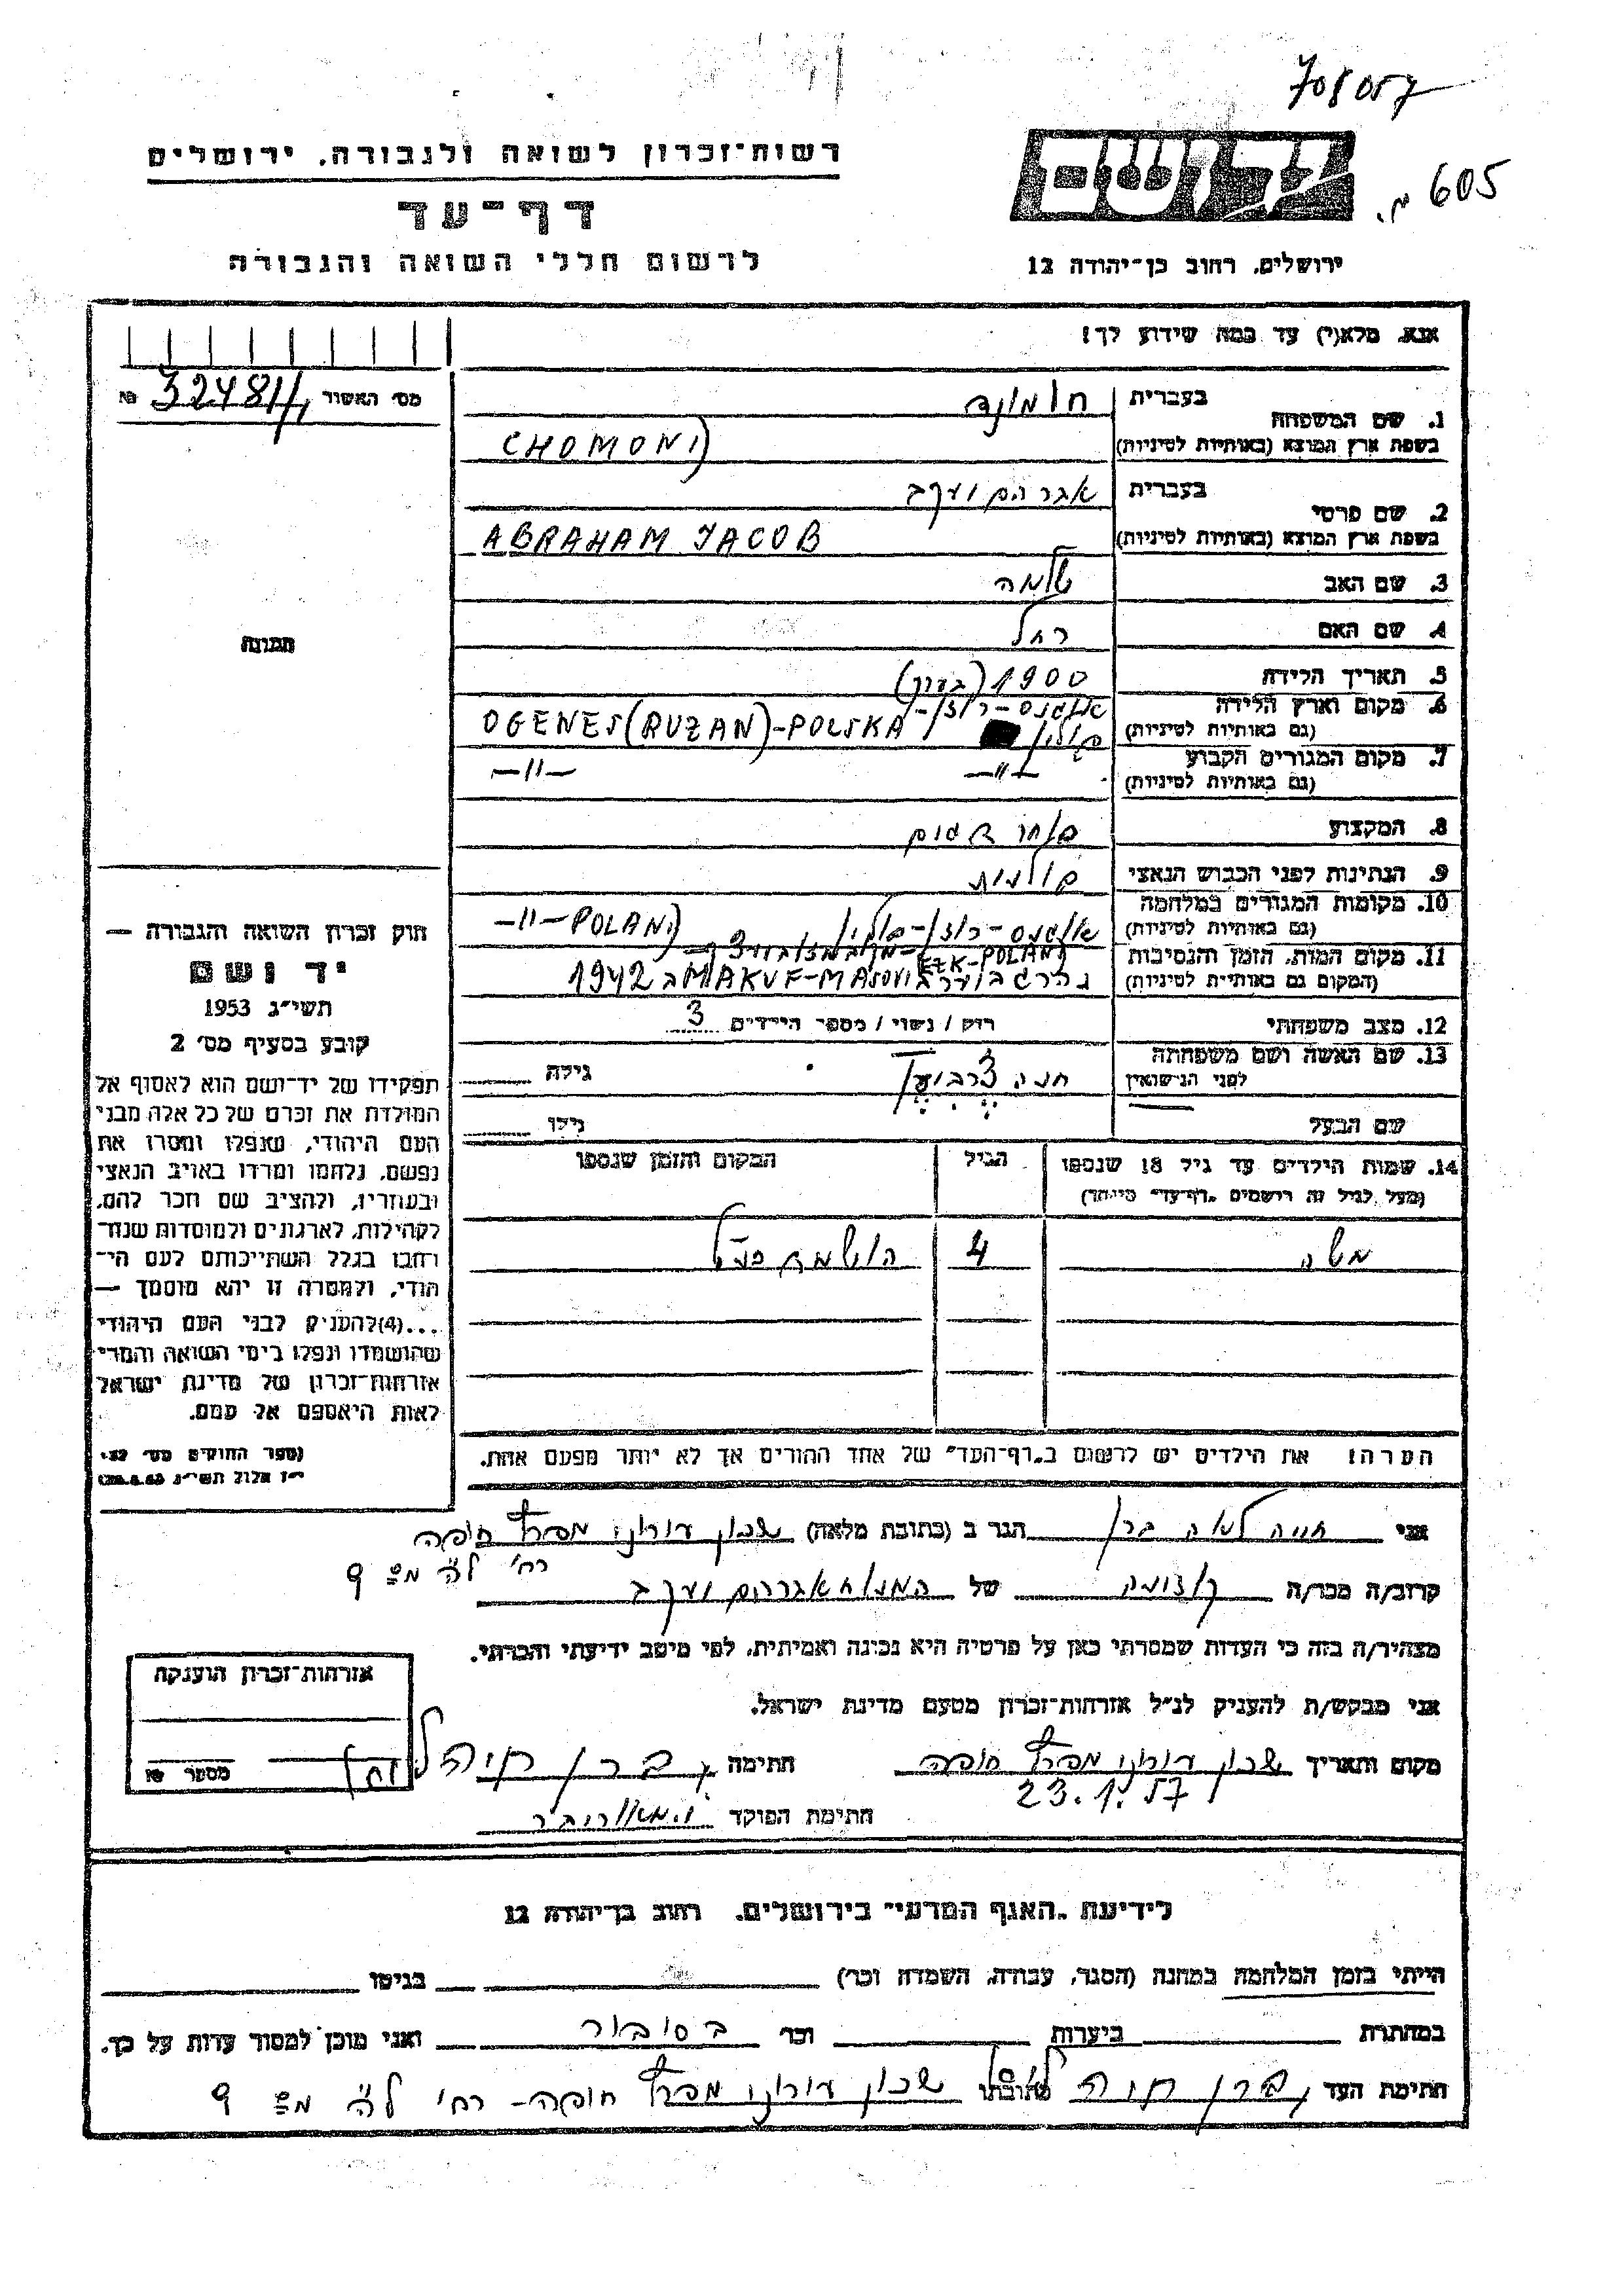 708057
605 .מ
יד ושם
רשות־זכרון לשואה ולגבורה, ירושלים
דף־עד
לרשום חללי השואה והגבורה
ירושלים, רחוב בן־יהודה 12
אנא, מלא(י) עד כמה שידוע לך!
מס׳ האשור 32481 №
1. שם המשפחה בעברית חומונד
בשפת ארץ המוצא (באותיות לטיניות) CHOMOND
2. שם פרטי בעברית אברהם יעקב
בשפת ארץ המוצא (באותיות לטיניות) ABRAHAM JACOB
3. שם האב שלמה
4. שם האם רחל
5. תאריך הלידה 1900 (בערך)
6. מקום וארץ הלידה
(גם באותיות לטיניות) פולין OGENES (RUZAN)-POLSKA
7. מקום המגורים הקבוע —וו— —וו—
(גם באותיות לטיניות)
8. המקצוע
9. הנתינות לפני הכבוש הנאצי פולנית
10. מקומות המגורים במלחמה
(גם באותיות לטיניות) פולין —וו— POLAND
11. מקום המות, הזמן והנסיבות
(המקום גם באותיות לטיניות) נהרג ב 1942
12. מצב משפחתי רווק / נשוי / מספר הילדים 3
13. שם האשה ושם משפחתה חנה גילה
לפני הנישואין
שם הבעל גילו
14. שמות הילדים עד גיל 18 שנספו הגיל המקום והזמן שנספו
(מעל לגיל זה רושמים „דף־עד״ מיוחד)
משה 4 הושמד כנ״ל
הערה! את הילדים יש לרשום ב„דף־העד״ של אחד ההורים אך לא יותר מפעם אחת.
תמונה
חוק זכרון השואה והגבורה —
יד ושם
תשי״ג 1953
קובע בסעיף מס׳ 2
תפקידו של יד־ושם הוא לאסוף אל
המולדת את זכרם של כל אלה מבני
העם היהודי, שנפלו ומסרו את
נפשם, נלחמו ומרדו באויב הנאצי
ובעוזריו, ולהציב שם וזכר להם,
לקהילות, לארגונים ולמוסדות שנח־
רבו בגלל השתייכותם לעם הי־
הודי, ולמטרה זו יהא מוסמך —
...(4)להעניק לבני העם היהודי
שהושמדו ונפלו בימי השואה והמרי
אזרחות־זכרון של מדינת ישראל
לאות היאספם אל עמם.
(ספר החוקים מס׳ 132,
י״ז אלול תשי״ג 28.8.53)
אני חיה לאה ברן הגר ב (כתובת מלאה) שכון עירוני מפרץ חיפה
רח׳ ל״ה מס 9
קרוב/ה מכר/ה של המנוח אברהם יעקב
מצהיר/ה בזה כי העדות שמסרתי כאן על פרטיה היא נכונה ואמיתית, לפי מיטב ידיעתי והכרתי.
אני מבקש/ת להעניק לנ״ל אזרחות־זכרון מטעם מדינת ישראל.
מקום ותאריך שכון עירוני מפרץ חיפה חתימה ברן חיה
23.1.57
חתימת הפוקד
אזרחות־זכרון הוענקה
מספר №
לידיעת „האגף המדעי״ בירושלים, רחוב בן־יהודה 12
הייתי בזמן המלחמה במחנה (הסגר, עבודה, השמדה וכו׳) בגיטו
במחתרת ביערות וכו׳ בסיביר ואני מוכן למסור עדות על כך.
חתימת העד ברן חיה כתובתו שכון עירוני מפרץ חיפה - רח׳ ל״ה מס 9